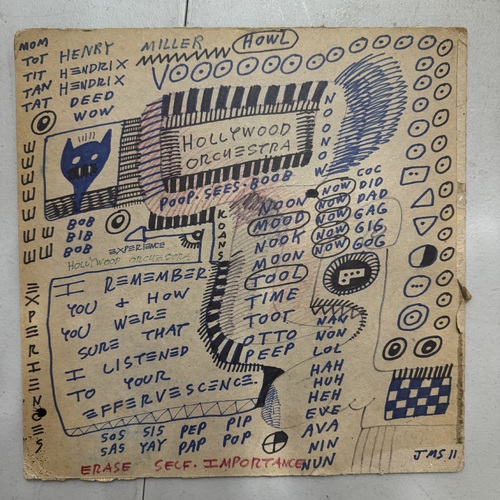 MOM
TOT HENRY MILLER HOWL
TIT HENDRIX
TAN HENDRIX
TAT DEED
WOW
HOLLYWOOD
ORCHESTRA
NOONOON
POOP. SEES. BOOB
EEEEEEE
EE
EE
EE
BOB
BIB
BOB
EXPERIENCE
HOLLYWOOD ORCHESTRA
KOONS
NOON
MOOD
NOOK
MOON
TOOL
TIME
TOOT
OTTO
PEEP
NOW COC
NOW DID
NOW DAD
NOW GAG
NOW GIG
NOW GOG
I REMEMBER
YOU & HOW
YOU WERE
SURE THAT
I LISTENED
TO YOUR
EFFERVESCENCE.
EXPERIENCES
NAN
NON
LOL
HAH
HUH
HEH
EVE
AVA
NIN
NUN
SOS SIS PEP PIP
SAS YAY PAP POP
ERASE SELF. IMPORTANCE
JMS 11